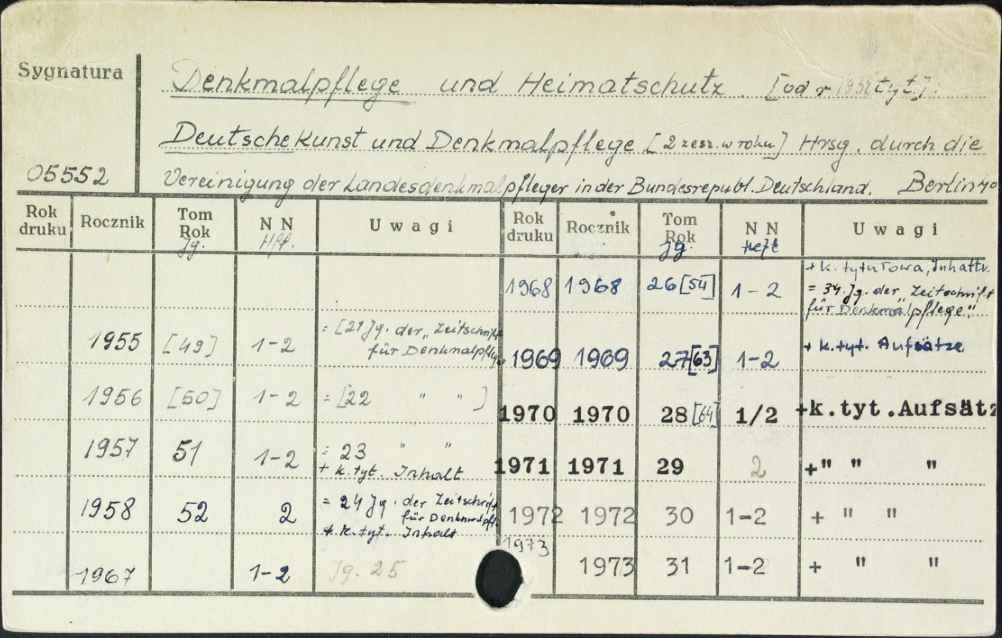 Sygnatura
Denkmalpflege und Heimatschutz. [od r. 1952 tyt]:
Deutsche Kunst und Denkmalpflege [2 zesz. w roku] Hrsg. durch die
05552
Vereinigung der Landesdenkmalpfleger in der Bundesrepubl. Deutschland. Berlin
Rok druku Rocznik Tom Rok Jg. N N Hft. Uwagi
1955 [49] 1-2 = [21 Jg. der „Zeitschrift
für Denkmalpflege
1956 [50] 1-2 = [22 " " ]
1957 51 1-2 = 23 " "
+ k. tyt. Inhalt
1958 52 2 = 24 Jg. der Zeitschrift
für Denkmalpfl.
+ k. tyt. Inhalt
1967 1-2 Jg. 25
Rok druku Rocznik Tom Rok Jg. N N Heft Uwagi
1968 1968 26 [54] 1-2 + k. tytułowa, Inhaltv.
= 34. Jg. der „Zeitschrift
für Denkmalpflege"
1969 1969 27 [63] 1-2 + k. tyt. Aufsätze
1970 1970 28 [64] 1/2 +k.tyt.Aufsätz
1971 1971 29 2 +" " "
1972 1972 30 1-2 + " "
1973 1973 31 1-2 + " "